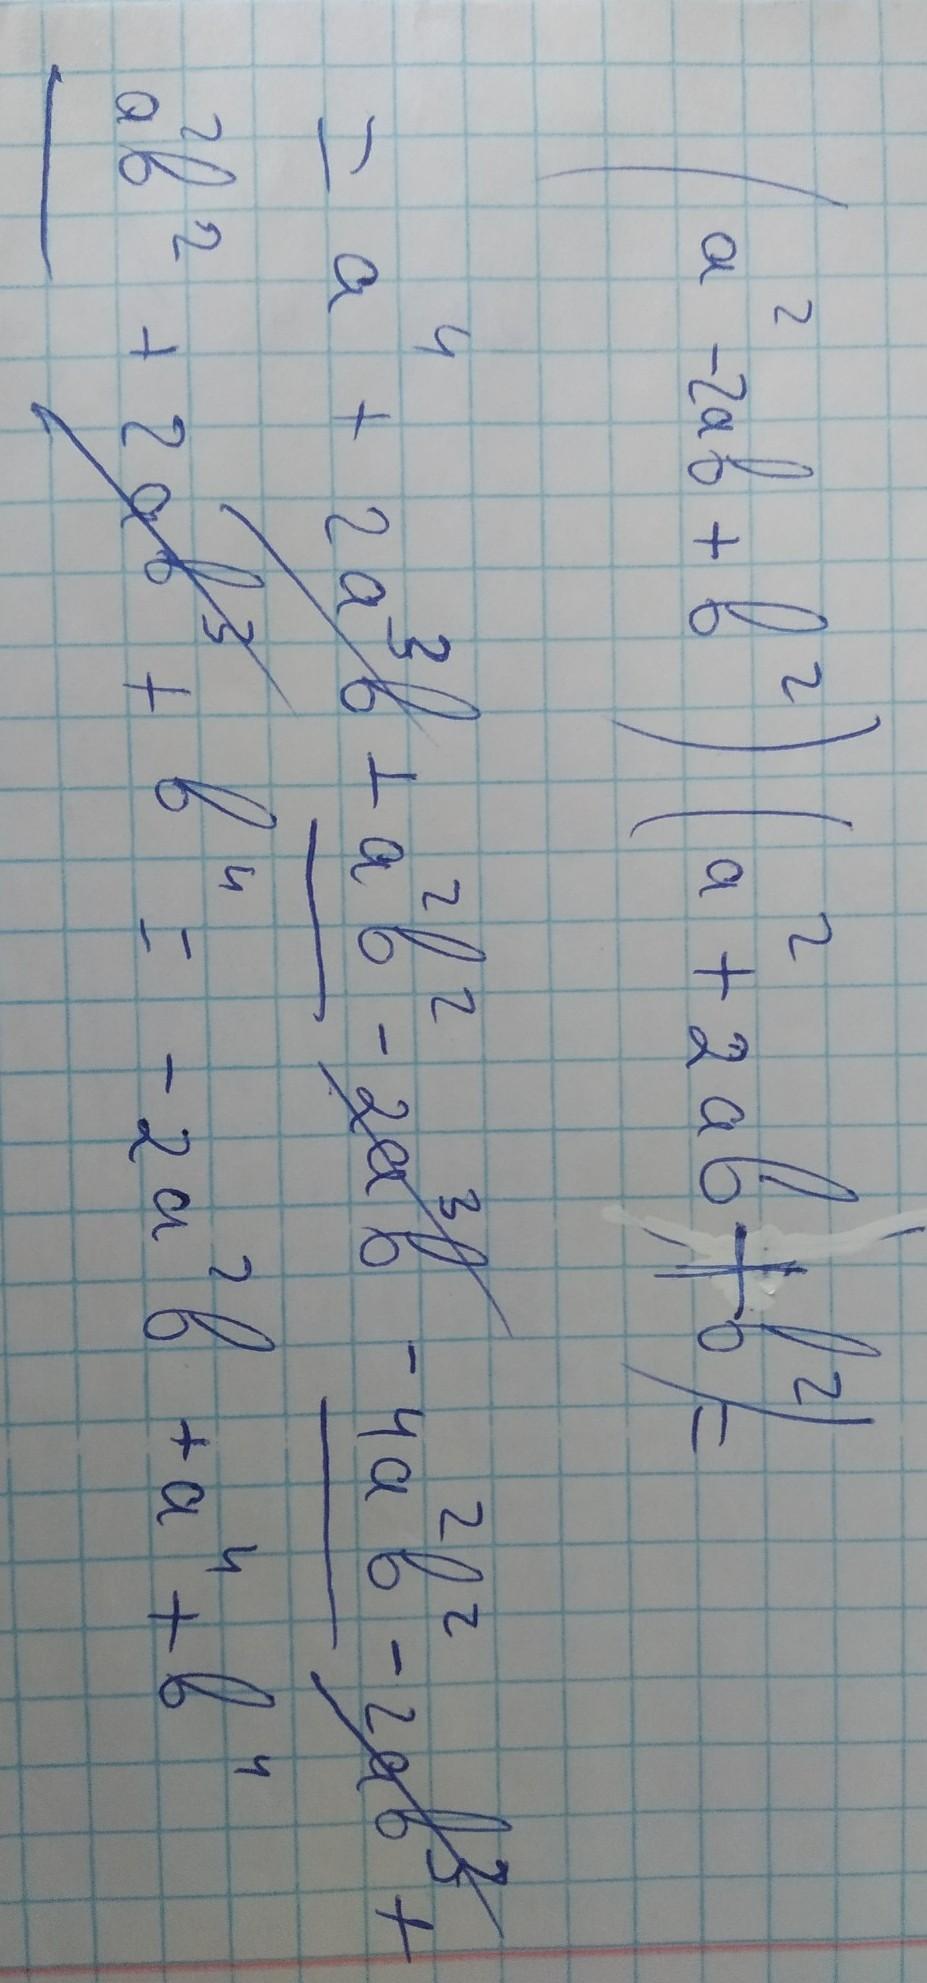 (a² -2ab + b²)(a² + 2ab + b²) =
= a⁴ + 2a³b + a²b² - 2a³b - 4a²b² - 2ab³ +
a²b² + 2ab³ + b⁴ = - 2a²b + a⁴ + b⁴